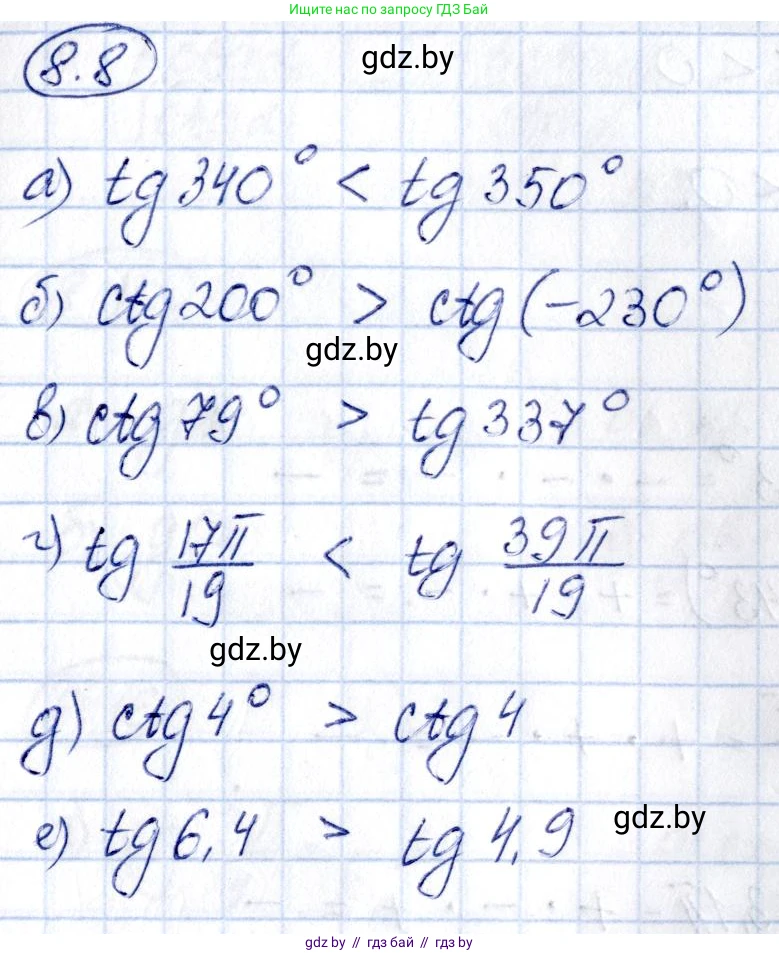 Ищите нас по запросу ГДЗ Бай
8.8
gdz.by
а) tg 340° < tg 350°
б) ctg 200° > ctg (-230°)
gdz.by
в) ctg 79° > tg 337°
г) tg 17π/19 < tg 39π/19
gdz.by
д) ctg 4° > ctg 4
е) tg 6,4 > tg 4,9
gdz.by
gdz.by // гдз бай // гдз by